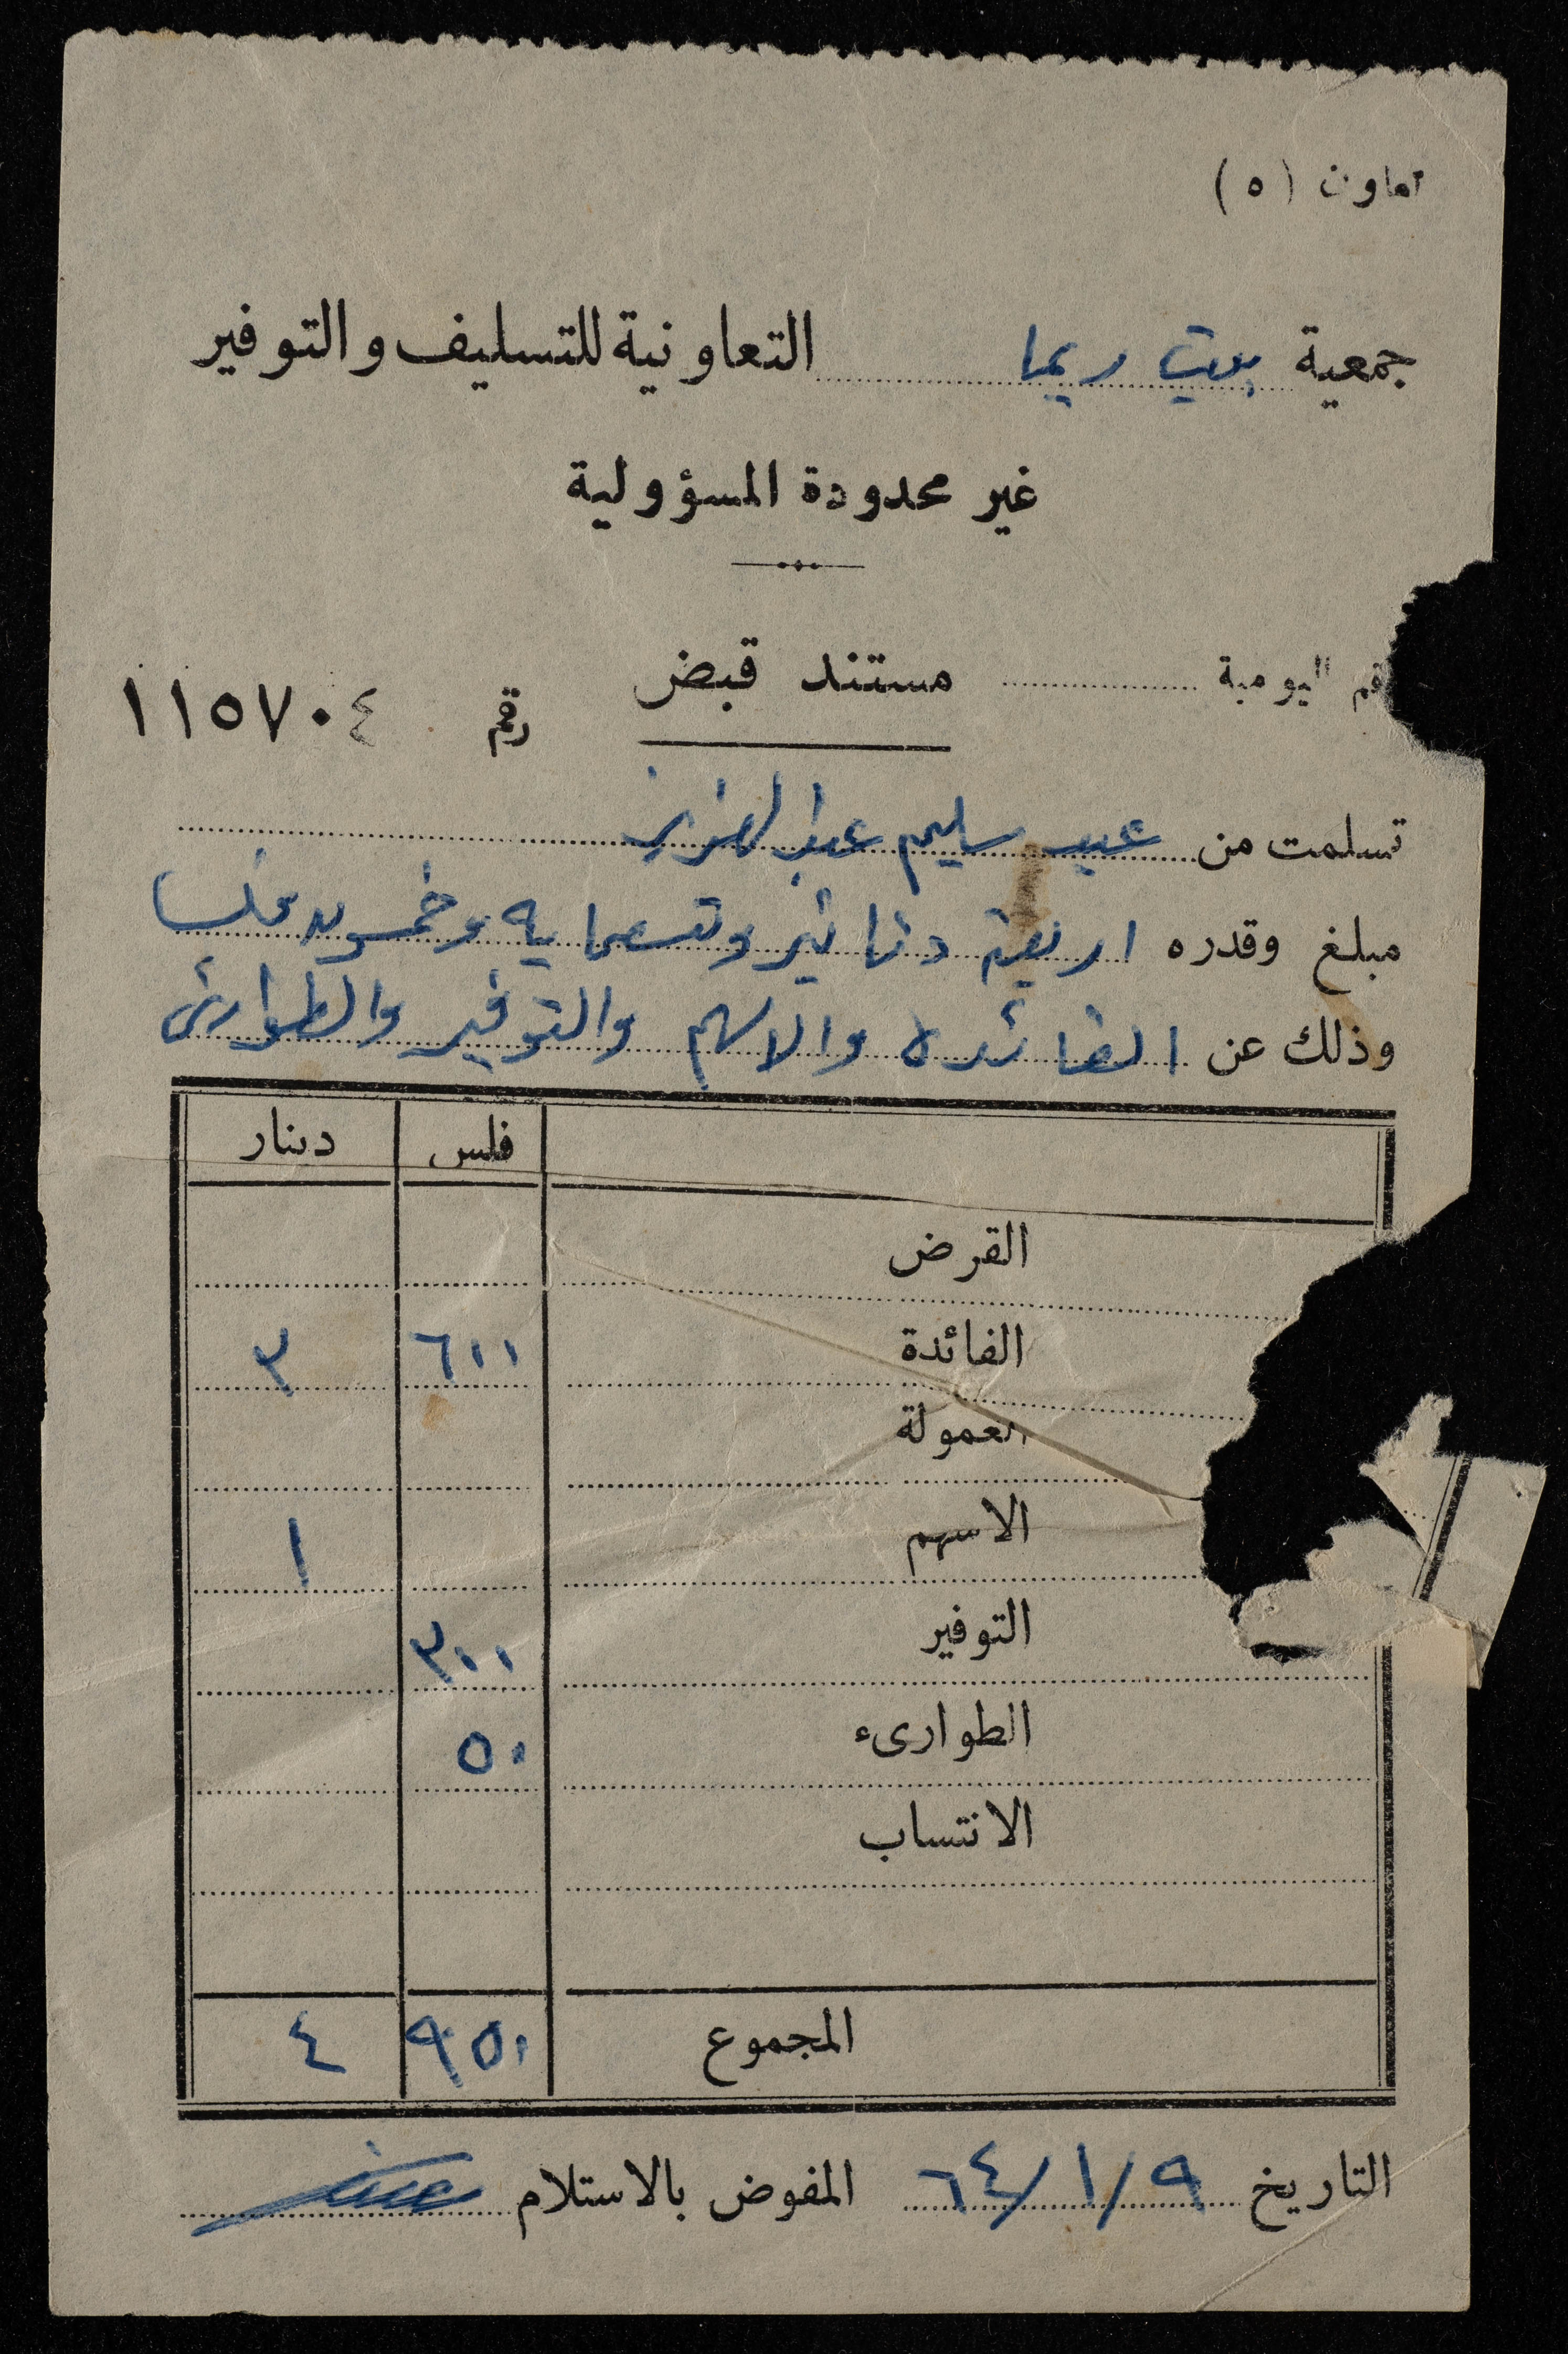 تعاون (٥)
جمعية بيت ريما التعاونية للتسليف والتوفير
غير محدودة المسؤولية
قم اليومية مستند قبض رقم ١١٥٧٠٤
تسلمت من عبد سليم عبد العزيز
مبلغ وقدره اربعة دنانير وتسعماية وخمسون فلسا
وذلك عن الفائدة والاسهم والتوفير والطوارئ
فلس دينار
القرض
الفائدة ٦٠٠ ٣
العمولة
الاسهم ١
التوفير ٣٠٠
الطوارىء ٥٠
الانتساب
المجموع ٩٥٠ ٤
التاريخ ٩/١/٦٤ المفوض بالاستلام